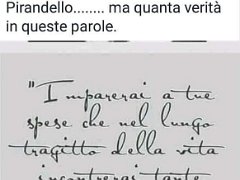 Pirandello........ ma quanta verità
in queste parole.
"Imparerai a tue
spese che nel lungo
tragitto della vita
incontrerai tante